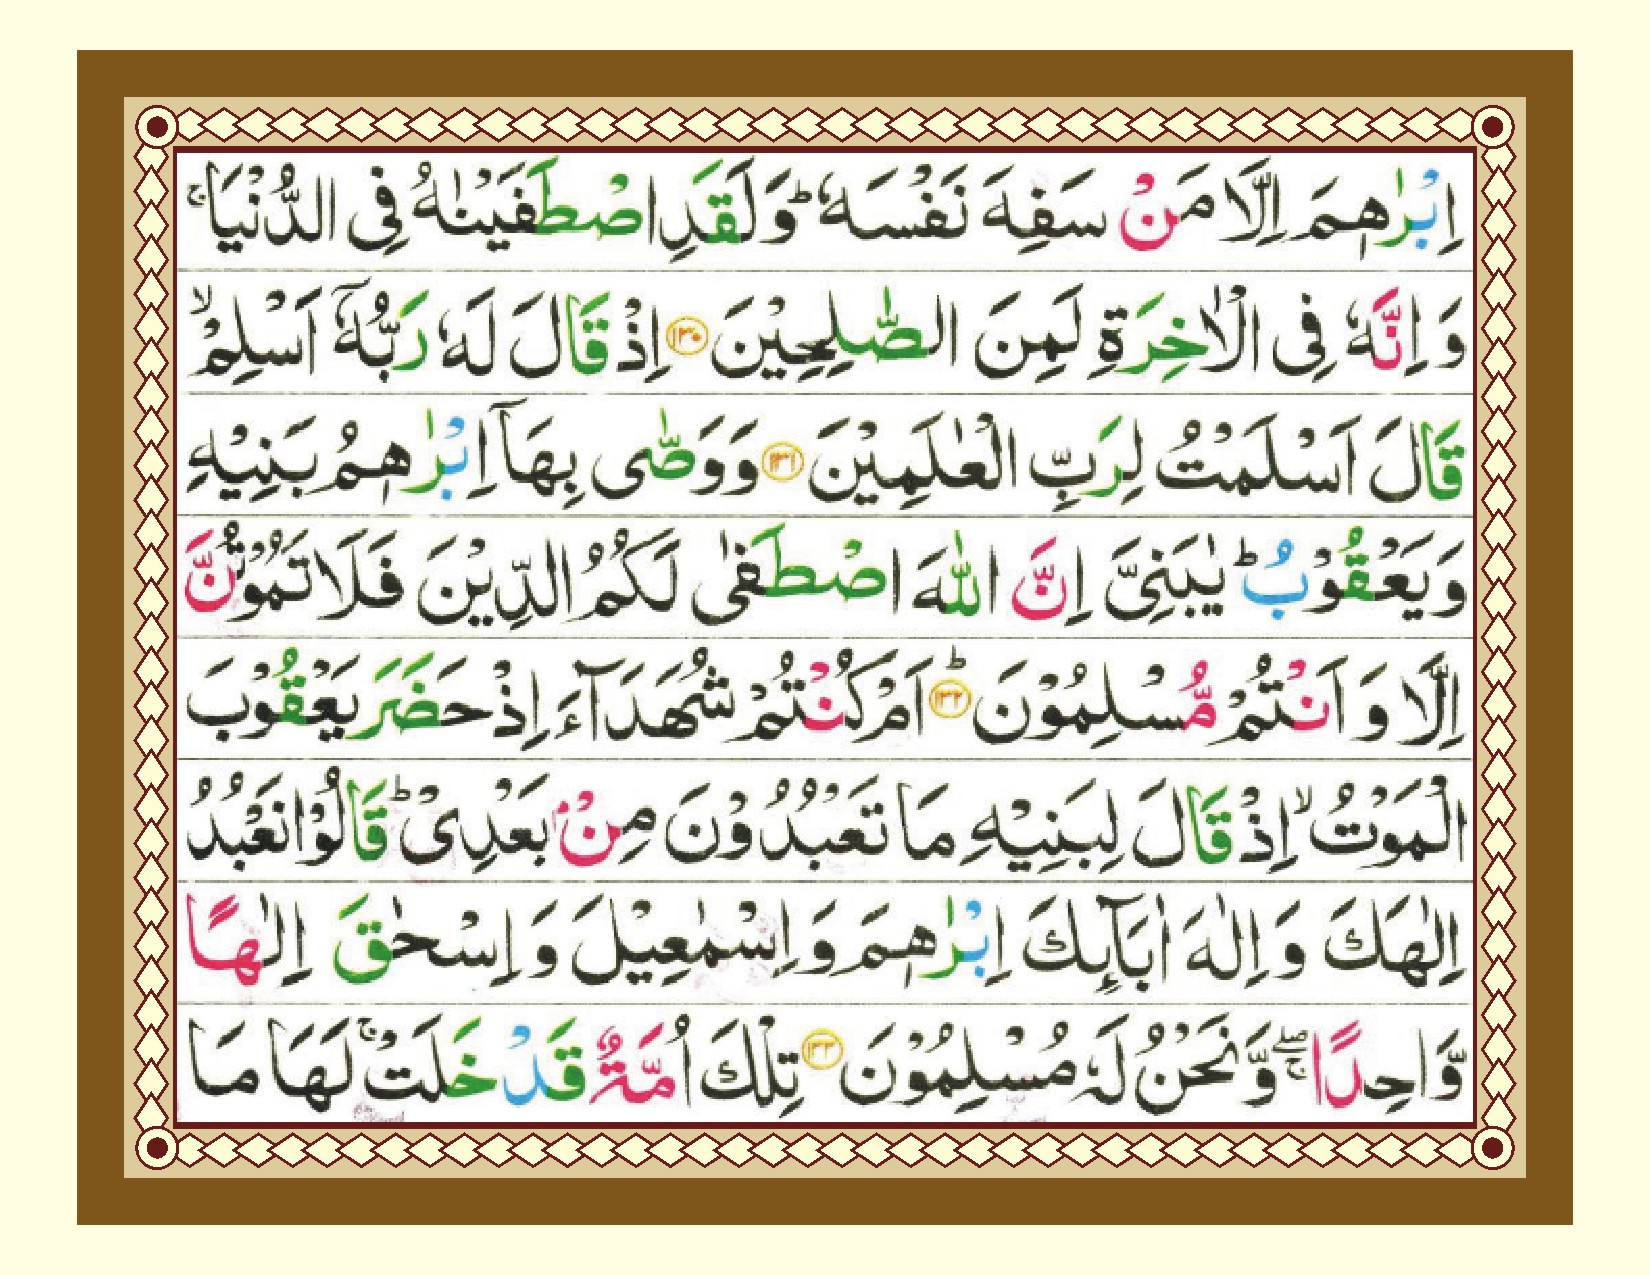 اِبْرٰهٖمَ اِلَّا مَنْ سَفِهَ نَفْسَهٗ ؕ وَلَقَدِ اصْطَفَيْنٰهُ فِى الدُّنْيَا ۚ
وَ اِنَّهٗ فِى الْاٰخِرَةِ لَمِنَ الصّٰلِحِيْنَ ﴿۱۳۰﴾ اِذْ قَالَ لَهٗ رَبُّهٗۤ اَسْلِمْ ۙ
قَالَ اَسْلَمْتُ لِرَبِّ الْعٰلَمِيْنَ ﴿۱۳۱﴾ وَوَصّٰى بِهَاۤ اِبْرٰهٖمُ بَنِيْهِ
وَيَعْقُوْبُ ؕ يٰبَنِىَّ اِنَّ اللّٰهَ اصْطَفٰى لَكُمُ الدِّيْنَ فَلَا تَمُوْتُنَّ
اِلَّا وَ اَنْتُمْ مُّسْلِمُوْنَ ؕ ﴿۱۳۲﴾ اَمْ كُنْتُمْ شُهَدَآءَ اِذْ حَضَرَ يَعْقُوْبَ
الْمَوْتُ ۙ اِذْ قَالَ لِبَنِيْهِ مَا تَعْبُدُوْنَ مِنْۢ بَعْدِىْ ؕ قَالُوْا نَعْبُدُ
اِلٰهَكَ وَ اِلٰهَ اٰبَآٮِٕكَ اِبْرٰهٖمَ وَ اِسْمٰعِيْلَ وَ اِسْحٰقَ اِلٰهًا
وَّاحِدًا ۖۚ وَّنَحْنُ لَهٗ مُسْلِمُوْنَ ﴿۱۳۳﴾ تِلْكَ اُمَّةٌ قَدْ خَلَتْ ۚ لَهَا مَا